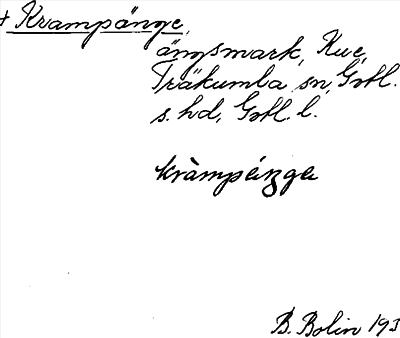 + Krampänge,
ängsmark, Kve,
Träkumla sn, Gotl.
s. hd, Gotl. l.
kràmpéizgɐ
B. Bolin 193